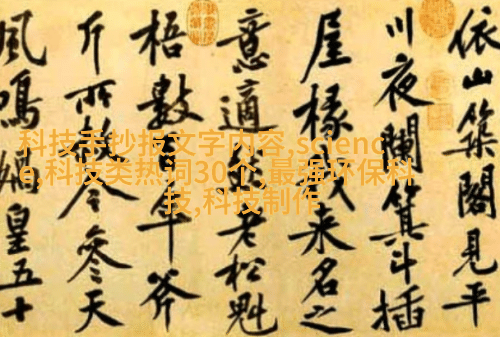 依山築閣見平
川夜闌箕斗插
屋椽我來名之
意適然老松魁
梧數百年斧
斤所赦今參天
風鳴媧皇五十
科技手抄报文字内容,scienc
e,科技类热词30个,最强环保科
技,科技制作